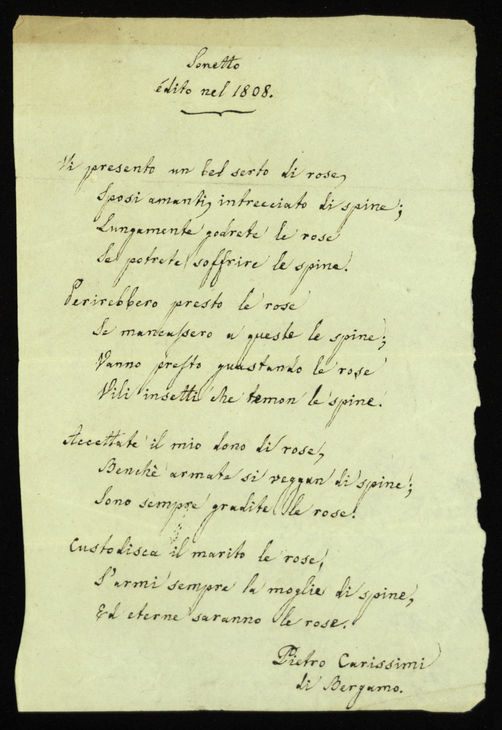 Sonetto
édito nel 1808.
Vi presento un bel serto di rose,
Sposi amanti, intrecciato di spine;
Lungamente godrete le rose
Se potrete soffrire le spine.
Perirebbero presto le rose
Se mancassero a queste le spine;
Vanno presto guastando le rose
Vili insetti che temon le spine.
Accettate il mio dono di rose,
Benchè armate si veggan di spine;
Sono sempre gradite le rose.
Custodisca il marito le rose,
S'armi sempre la moglie di spine,
Ed eterne saranno le rose.
Pietro Carissimi
di Bergamo.